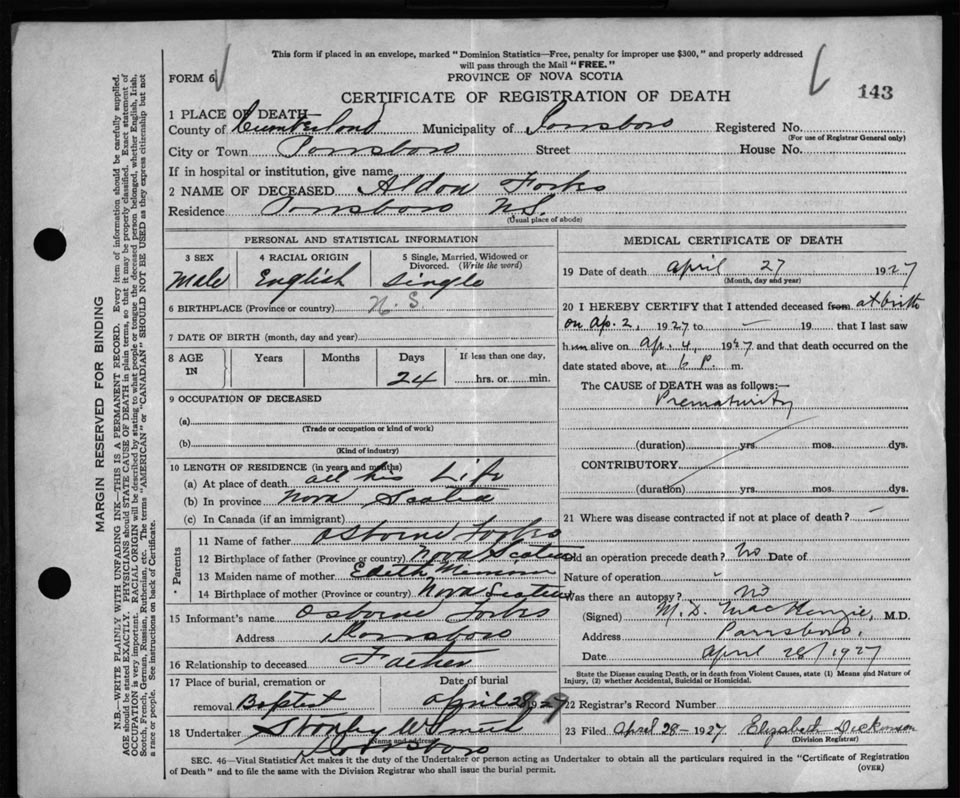 This form if placed in an envelope, marked "Dominion Statistics—Free, penalty for improper use $300," and properly addressed
will pass through the Mail "FREE."
FORM 6
PROVINCE OF NOVA SCOTIA
CERTIFICATE OF REGISTRATION OF DEATH
143
1 PLACE OF DEATH—
County of Cumberland Municipality of Parrsboro Registered No.
(For use of Registrar General only)
City or Town Parrsboro Street House No.
If in hospital or institution, give name
2 NAME OF DECEASED Aldon Forbs
Residence Parrsboro N.S.
(Usual place of abode)
PERSONAL AND STATISTICAL INFORMATION
3 SEX 4 RACIAL ORIGIN 5 Single, Married, Widowed or
Divorced. (Write the word)
Male English Single
6 BIRTHPLACE (Province or country) N. S
7 DATE OF BIRTH (month, day and year)
8 AGE IN Years Months Days If less than one day,
24 hrs. or min.
9 OCCUPATION OF DECEASED
(a)
(Trade or occupation or kind of work)
(b)
(Kind of industry)
10 LENGTH OF RESIDENCE (in years and months)
(a) At place of death all his Life
(b) In province Nova Scotia
(c) In Canada (if an immigrant)
Parents
11 Name of father Osborne Forbs
12 Birthplace of father (Province or country) Nova Scotia
13 Maiden name of mother Edith
14 Birthplace of mother (Province or country) Nova Scotia
15 Informant's name Osborne Forbs
Address Parrsboro
16 Relationship to deceased Father
17 Place of burial, cremation or Date of burial
removal Baptist April 28 1927
18 Undertaker Stanley W Smith
(Name and address)
Parrsboro
MEDICAL CERTIFICATE OF DEATH
19 Date of death April 27 1927
(Month, day and year)
20 I HEREBY CERTIFY that I attended deceased from at birth
on Ap. 2, 1927 to — 19 that I last saw
him alive on Ap. 4, 1927 and that death occurred on the
date stated above, at 6 P. m.
The CAUSE of DEATH was as follows:—
Prematurity
(duration) yrs. mos. dys.
CONTRIBUTORY
(duration) yrs. mos. dys.
21 Where was disease contracted if not at place of death? —
Did an operation precede death? No Date of
Nature of operation
Was there an autopsy? No
(Signed) M. D. MacKenzie, M.D.
Address Parrsboro,
Date April 28/1927
State the Disease causing Death, or in death from Violent Causes, state (1) Means and Nature of
Injury, (2) whether Accidental, Suicidal or Homicidal.
22 Registrar's Record Number
23 Filed April 28 - 1927 Elizabeth Dickinson
(Division Registrar)
SEC. 46—Vital Statistics Act makes it the duty of the Undertaker or person acting as Undertaker to obtain all the particulars required in the "Certificate of Registration
of Death" and to file the same with the Division Registrar who shall issue the burial permit.
(OVER)
MARGIN RESERVED FOR BINDING
N.B.—WRITE PLAINLY, WITH UNFADING INK—THIS IS A PERMANENT RECORD. Every item of information should be carefully supplied.
AGE should be stated EXACTLY. PHYSICIANS should STATE CAUSE OF DEATH in plain terms, so that it may be properly classified. Exact statement of
OCCUPATION is very important. RACIAL ORIGIN will be described by stating to what people or tongue the deceased person belonged, whether English, Irish,
Scotch, French, German, Russian, Ruthenian, etc. The terms "AMERICAN" or "CANADIAN" SHOULD NOT BE USED as they express citizenship but not
a race or people. See instructions on back of Certificate.